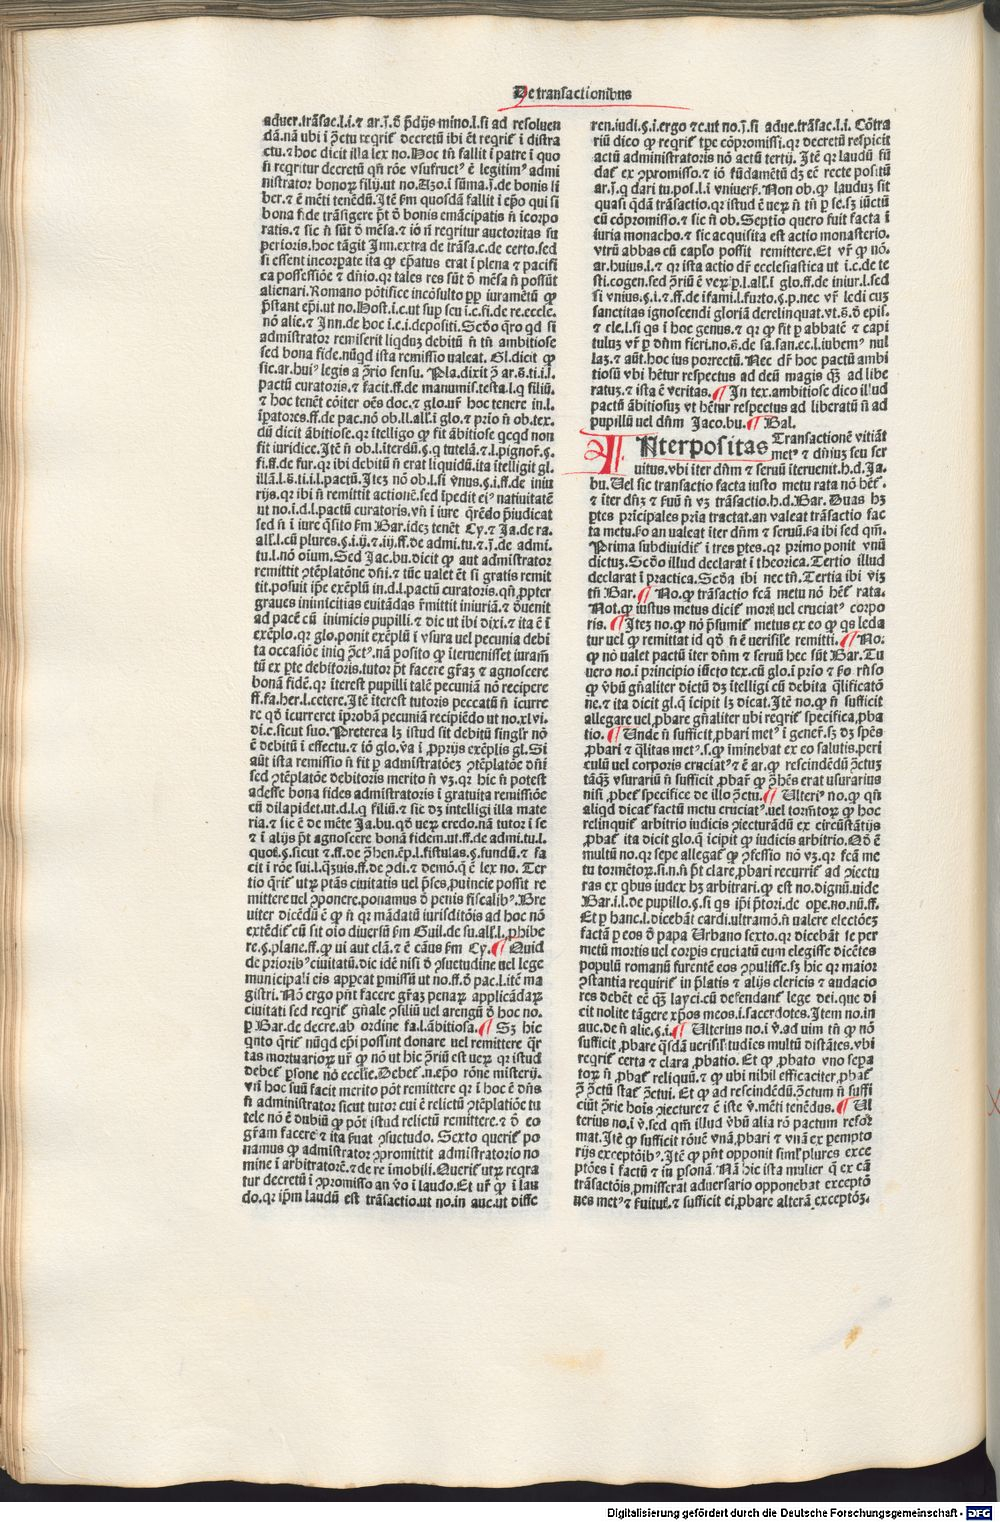 De transactionibus
aduer.trãsac.l.i.⁊ ar.ĩ.d̃ p̃dijs mino.l.si ad resoluen
dã.nã ubi ĩ ꝯ̃ctu reqrit᷑ decretũ ibi ẽt reqrit᷑ ĩ distra
ctu.⁊ hoc dicit illa lex no. Hoc tñ fallit ĩ patre ĩ quo
si reqritur decretũ qñ rõe vsufruct⁹ ē legitim⁹ admi
nistrator bonoꝝ filij.ut no.Azo.ĩ sũma.ĩ.de bonis li
ber.⁊ ē mẽti tenẽdũ. Itẽ ẜm quosdã fallit ĩ ep̃o qui si
bona fide trãsigere p̃t d̃ bonis emãcipatis ñ ĩcorpo
ratis.⁊ sic ñ sũt d̃ mẽsa.⁊ iõ ñ reqritur auctoritas su
perioris.hoc tãgit Inn.extra de trãsa.c.de certo.sed
si essent incorpate ita ꝙ ep̃atus erat ĩ plena ⁊ pacifi
ca possessiõe ⁊ dñio.qꝛ tales res sũt d̃ mẽsa ñ possũt
alienari.Romano põtifice incõsulto ꝓp iuramẽtũ ꝙ
p̃stant ep̃i.ut no.Host.i.c.ut sup seu i.c.fi.de re.eccle.
nõ alie.⁊ Inn.de hoc i.c.i.depositi. Scd̃o q̃ro qd si
admĩstrator remiserit liqduz debitũ ñ tñ ambitiose
sed bona fide.nũqd ista remissio ualeat. Gl.dicit ꝙ
sic.ar.hui⁹ legis a ꝯ̃rio sensu. Pla.dixit ꝯ̃ ar.s.ti.i.l.
pactũ curatoris.⁊ facit.ff.de manumis.testa.l.q filiũ.
⁊ hoc tenẽt cõiter oẽs doc.⁊ glo.ur̃ hoc tenere in.l.
ĩpatores.ff.de pac.nõ ob.ll.all.ĩ glo.⁊ prio ñ ob.tex.
dũ dicit ãbitiose.qꝛ ĩtelligo ꝙ fit ãbitiose qcqd non
fit iuridice. Itẽ ñ ob.l.ĩterdũ.§.q tutelã.⁊.l.pignoꝝ.§.
fi.ff.de fur.qꝛ ibi debitũ ñ erat liquidũ.ita ĩtelligit gl.
illã.l.s.ti.i.l.pactũ. Itez nõ ob.l.si vnus.§.i.ff.de iniu
rijs.qꝛ ibi ñ remittit actionẽ.sed ĩpedit ei⁹ natiuitatẽ
ut no.i.d.l.pactũ curatoris.vñ ĩ iure q̃rẽdo p̃iudicat
sed ñ ĩ iure q̃sito ẜm Bar.idez tenẽt Cy.⁊ Ja.de ra.
all.l.cũ plures.§.i.ij.⁊.iij.ff.de admi.tu.⁊.ĩ.de admi.
tu.l.nõ oium. Sed Jac.bu.dicit ꝙ aut admĩstrator
remittit ꝯtẽplatõne dñi.⁊ tũc ualet ẽt si gratis remit
tit.posuit ip̃e exẽplũ in.d.l.pactũ curatoris.qñ ꝓpter
graues inimicitias euitãdas r̃mittit iniuriã.⁊ d̃uenit
ad pacẽ cũ inimicis pupilli.⁊ dic ut ibi dixi.⁊ ita ē ĩ
exẽplo.qꝛ glo.ponit exẽplũ ĩ vsura uel pecunia debi
ta occasiõe iniq ꝯ̃ct⁹.nã posito ꝙ ĩteruenisset iuram̃
tũ ex pte debitoris.tutor p̃t facere gr̃az ⁊ agnoscere
bonã fidẽ.qꝛ ĩterest pupilli talẽ pecuniã nõ recipere
ff.fa.her.l.cetere. Itẽ ĩterest tutoris peccatũ ñ ĩcurre
re qd̃ ĩcurreret ĩprobã pecuniã recipiẽdo ut no.xlvi.
di.c.sicut suo. Preterea lꝫ istud sit debitũ singlr̃ nõ
ē debitũ ĩ effectu.⁊ iõ glo.ṽa ĩ ꝓprijs exẽplis gl. Si
aũt ista remissio ñ fit ꝑ administratõez ꝯtẽplatõe dñi
sed ꝯtẽplatõe debitoris merito ñ vꝫ.qꝛ hic ñ potest
adesse bona fides administratoris ĩ gratuita remissiõe
cũ dilapidet.ut.d.l.q filiũ.⁊ sic dꝫ intelligi illa mate
ria.⁊ sic ē de mẽte Ja.bu.qd̃ ueꝝ credo.nã tutor ĩ se
⁊ ĩ alijs p̃t agnoscere bonam fidem.ut.ff.de admi.tu.l.
quot᷑.§.sicut ⁊.ff.de ꝯ̃hen.ẽp.l.fistulas.§.fundũ.⁊ fa
cit ĩ rõe sui.l.q̃zuis.ff.de ꝯdi.⁊ demõ.q̃ ē lex no. Ter
tio q̃rit᷑ utꝝ ptãs ciuitatis uel p̃ses,puincie possit re
mittere uel ꝯponere.ponamus d̃ penis fiscalib⁹. Bre
uiter dicẽdũ ē ꝙ ñ qꝛ mãdatũ iurisditõis ad hoc nõ
extẽdit᷑ cũ sit oĩo diuersũ ẜm Guil.de su.all.l.ꝓhibe
re.§.plane.ff.ꝙ ui aut clã.⁊ ē cãus ẜm Cy.¶ Quid
de priorib⁹ ciuitatũ.dic idẽ nisi d̃ ꝯsuetudine uel lege
municipali eis appeat ꝑmissũ ut no.ff.d̃ pac.l.itẽ ma
gistri. Nõ ergo pñt facere gr̃az penaꝝ applicãdaꝝ
ciuitati sed reqrit᷑ gñale ꝯsiliũ uel arengũ d̃ hoc no.
ꝑ Bar.de decre.ab ordine fa.l.ãbitiosa.¶ Sꝫ hic
qnto q̃rit᷑ nũqd ep̃i possint donare uel remittere q̃r
tas mortuarioꝝ ur̃ ꝙ nõ ut hic ꝯ̃riũ est ueꝝ qꝛ istud
debet᷑ ꝑsone nõ ecclie.Debet᷑.n.ep̃o rõne misterij.
vñ hoc suũ facit merito põt remittere qꝛ ĩ hoc ē dñs
ñ administrator sicut tutor cui ē relictũ ꝯtẽplatiõe tu
tele nõ ē dubiũ ꝙ põt istud relictũ remittere.⁊ d̃ eo
gr̃am facere ⁊ ita ẜuat ꝯsuetudo. Sexto querit᷑ po
namus ꝙ admĩstrator ꝯpromittit admĩstratorio no
mine ĩ arbitratorẽ.⁊ de re ĩmobili. Querit᷑ utꝝ reqra
tur decretũ ĩ ꝯpromisso an ṽo ĩ laudo. Et ur̃ ꝙ ĩ lau
do.qꝛ ip̃m laudũ est trãsactio.ut no.in auc.ut diffe
ren.iudi.§.i.ergo ⁊c.ut no.ĩ.si adue.trãsac.l.i. Cõtra
riũ dico ꝙ reqrit᷑ tꝑe cõpromissi.qꝛ decretũ respicit
actũ administratoris nõ actũ tertij. Itẽ qꝛ laudũ fũ
dat᷑ ex ꝯpromisso.⁊ iõ fũdamẽtũ dꝫ eẽ recte positũ
ar.ĩ.q dari tu.pos.l.i vniuers. Non ob.ꝙ lauduz sit
quasi q̃dã trãsactio.qꝛ istud ē ueꝝ ñ tñ ꝑ se.sꝫ iũctũ
cũ cõpromisso.⁊ sic ñ ob. Septio quero fuit facta ĩ
iuria monacho.⁊ sic acquisita est actio monasterio.
vtrũ abbas cũ caplo possit remittere. Et ur̃ ꝙ nõ.
ar.huius.l.⁊ qꝛ ista actio dr̃ ecclesiastica ut i.c.de te
sti.cogen.sed ꝯ̃riũ ē veꝝ ꝑ.l.all.ĩ glo.ff.de iniur.l.sed
si vnius.§.i.⁊.ff.de ĩfami.l.furto.§.p.nec vr̃ ledi cuz
sanctitas ignoscendi gloriã derelinquat.vt.s.d̃ epis.
⁊ cle.l.si qs ĩ hoc genus.⁊ qꝛ ꝙ fit ꝑ abbatẽ ⁊ capi
tuluz vr̃ ꝑ dñm fieri.no.s.de sa.san.ec.l.iubem⁹ nul
laz.⁊ aũt.hoc ius porrectũ. Nec dr̃ hoc pactũ ambi
tiosũ vbi hẽtur respectus ad deũ magis q̃ꝫ ad libe
ratuz.⁊ ista ē veritas.¶ In tex.ambitiose dico illud
pactũ ãbitiosuz vt hẽtur respectus ad liberatũ ñ ad
pupillũ uel dñm Jaco.bu.¶ Bal.
INterpositas Transactionẽ vitiãt
met⁹ ⁊ dñiuz seu ser
uitus.vbi ĩter dñm ⁊ seruũ ĩteruenit.h.d.Ja.
bu. Uel sic transactio facta iusto metu rata nõ het᷑.
⁊ ĩter dñz ⁊ ẜuũ ñ vꝫ trãsactio.h.d.Bar. Duas hꝫ
ꝑtes prĩcipales pria tractat.an valeat trãsactio fac
ta metu.ẜo an ualeat ĩter dñm ⁊ seruũ.ẜa ibi sed qm̃.
Prima subdiuidit᷑ ĩ tres ꝑtes.qꝛ primo ponit vnũ
dictuz. Scd̃o illud declarat ĩ theorica. Tertio illud
declarat ĩ practica. Scd̃a ibi nec tñ. Tertia ibi viz
tñ Bar.¶ No.ꝙ trãsactio fcã metu nõ het᷑ rata.
Not.ꝙ iustus metus dicit᷑ mortis uel cruciat⁹ corpo
ris.¶ Itez no.ꝙ nõ p̃sumit᷑ metus ex eo ꝙ qs leda
tur uel ꝙ remittat id qd̃ ñ ē uerisile remitti.¶ No.
ꝙ nõ ualet pactũ ĩter dñm ⁊ seruũ hec sũt Bar. Tu
uero no.i principio iũcto tex.cũ glo.i prio ⁊ ẜo rñso
ꝙ vbũ gñaliter dictũ dꝫ ĩtelligi cũ debita q̃lificatõ
ne.⁊ ita dicit gl.q̃ ĩcipit lꝫ dicat. Itẽ no.ꝙ ñ sufficit
allegare uel,pbare gñaliter ubi reqrit᷑ specifica,pba
tio.¶ Unde ñ sufficit,pbari met⁹ ĩ gener᷑.sꝫ dꝫ spẽs
,pbari ⁊ q̃litas met⁹.s.ꝙ ĩminebat ex eo salutis.peri
culũ uel corporis cruciat⁹ ⁊ ē ar.ꝙ rescindẽdũ ꝯ̃ctuz
tãq̃ꝫ vsurariũ ñ sufficit,pbar᷑ ꝙ ꝯ̃hẽs erat usurarius
nisi,pbet᷑ specifice de illo ꝯ̃ctu.¶ Ulteri⁹ no.ꝙ qñ
aliqd dicat᷑ factũ metu cruciat⁹.uel tormẽtoꝝ ꝙ hoc
relinquit᷑ arbitrio iudicis ꝯiecturãdũ ex circũstãtijs
,pbat᷑ ita dicit glo.q̃ ĩcipit ꝙ iudicis arbitrio. Qd̃ ē
multũ no.qꝛ sepe allegat᷑ ꝙ ꝯfessio nõ vꝫ.qꝛ fcã me
tu tormẽtoꝝ.si.n.ñ p̃t clare,pbari recurrit᷑ ad ꝯiectu
ras ex qbus iudex hꝫ arbitrari.ꝙ est no.dignũ.uide
Bar.i.l.de pupillo.§.si qs ip̃i p̃tori.de ope.no.nũ.ff.
Et ꝑ hanc.l.dicebãt cardi.ultramõ.ñ ualere electõez
factã ꝑ eos d̃ papa Urbano sexto.qꝛ dicebãt se per
metũ mortis uel corpis cruciatũ eum elegisse dicẽtes
populũ romanũ furentẽ eos ꝯpulisse.sꝫ hic qꝛ maior
ꝯstantia requirit᷑ in p̃latis ⁊ alijs clericis ⁊ audacio
res debẽt eẽ q̃ꝫ layci.cũ defendant᷑ lege dei.que di
cit nolite tãgere xp̃os meos.i.sacerdotes. Item no.in
auc.de ñ alie.§.i.¶ Ulterius no.i ṽ.ad uim tñ ꝙ nõ
sufficit,pbare q̃sdã uerisilitudies multũ distãtes.vbi
reqrit᷑ certa ⁊ clara,pbatio. Et ꝙ,pbato vno sepa
toꝝ ñ,pbat᷑ reliquũ.⁊ ꝙ ubi nihil efficaciter,pbat᷑
ꝯ̃ ꝯ̃ctũ stat᷑ ꝯ̃ctui. Et ꝙ ad rescindẽdũ.ꝯ̃ctum ñ suffi
ciũt ꝯ̃rie hoĩs ꝯiecture ⁊ ē iste ṽ.mẽti tenẽdus.¶ Ul
terius no.i ṽ.sed qm̃ illud vbũ alia rõ pactum refor
mat. Itẽ ꝙ sufficit rõnẽ vnã,pbari ⁊ vnã ex perempto
rijs exceptõib⁹. Itẽ ꝙ pñt opponit siml̃ plures exce
ptões ĩ factũ ⁊ ĩn ꝑsonã. Nã hic ista mulier q̃ ex cã
trãsactõis,pmisserat aduersario opponebat exceptõ
nes met⁹ ⁊ ẜuitut᷑.⁊ sufficit ei,pbare alterã exceptõz.
Digitalisierung gefördert durch die Deutsche Forschungsgemeinschaft - DFG